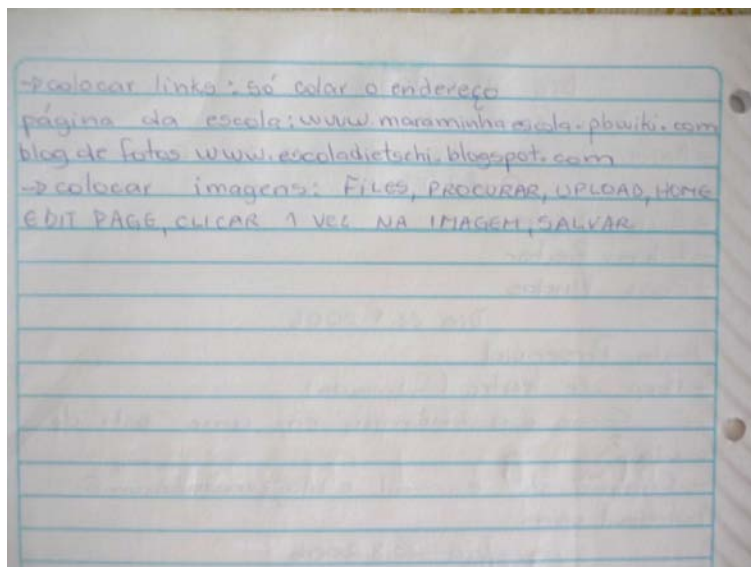 → colocar links: só colar o endereço
página da escola: www.maraminhaescola.pbwiki.com
blog de fotos www.escoladietschi.blogspot.com
→ colocar imagens: FILES, PROCURAR, UPLOAD, HOME
EDIT PAGE, CLICAR 1 VEZ NA IMAGEM, SALVAR